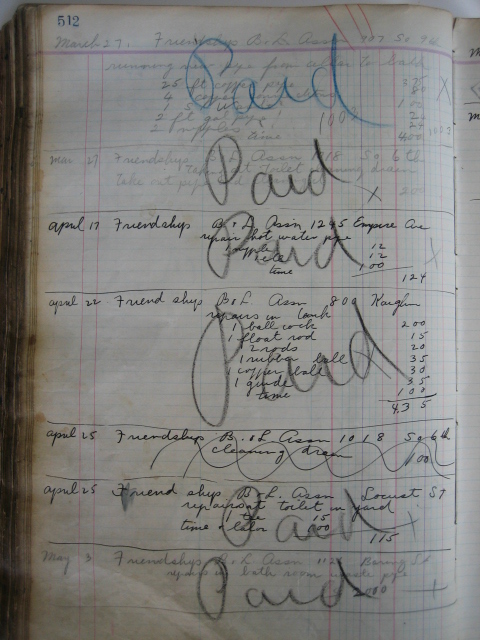 512
March 27. Friendships B. & L. Assn 907 So 9th
running new pipe from cellar to bath
25 ft copper pipe 3 75
4 copper
2 ft gal pipe 100
2 nipples
time 4 00
Paid
Mar 27 Friendships B. & L. Assn 918 So 6th
toilet running drain
take out pipe 2 00
Paid
april 17 Friendships B & L Assn 1245 Empire Ave
repair hot water pipe
1 nipple 12
12
time 1 00
1 24
Paid
april 22 Friend ships B & L. Assn 800 Kaighn
repairs in tank
1 ball cock 2 00
1 float rod 15
2 rods 20
1 rubber ball 35
1 copper ball 30
1 guide 35
time 1 00
4 3 5
Paid
april 25 Friendships B. & L Assn 1018 So 6th
cleaning drain
1 00
april 25 Friend ships B & L. Assn Locust St
repairs at toilet in yard
15
time & labor 1 00
1 15
Paid
May 3 Friendships B & L Assn St
repairs in bath room waste pipe
2 00
Paid